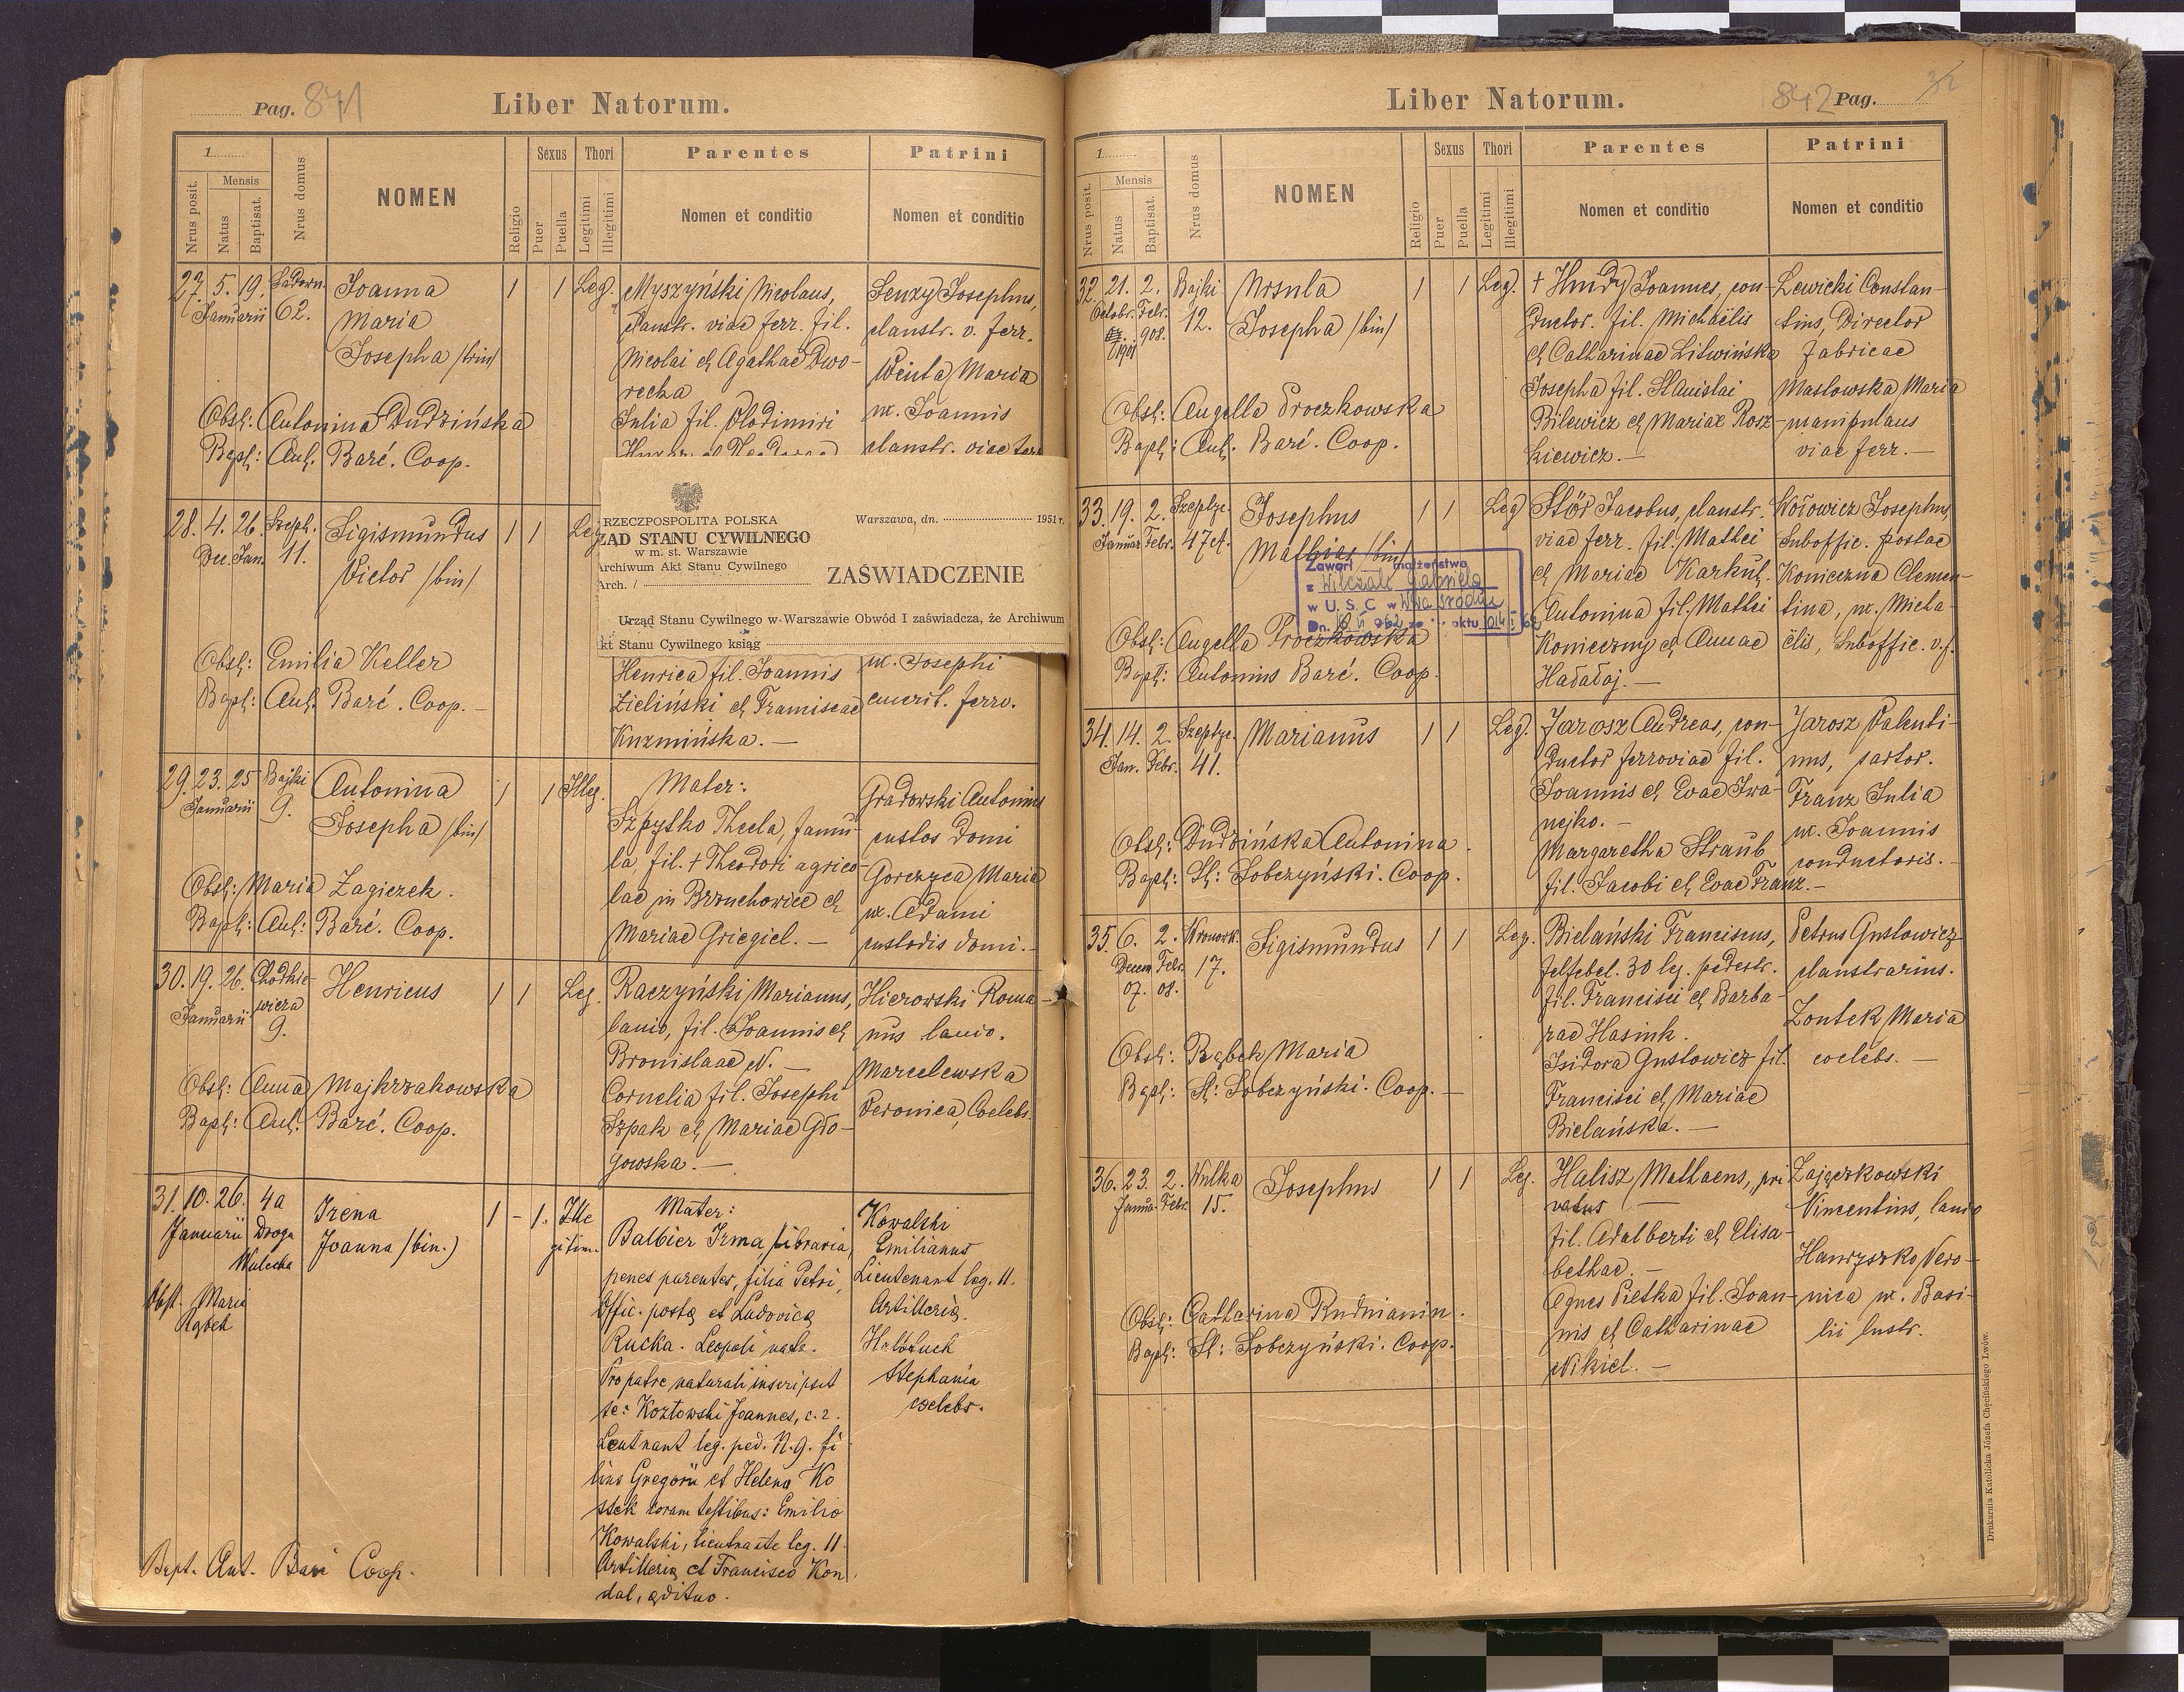 Pag. 841
Liber Natorum.
1
Nrus posit.
Mensis
Natus
Baptisat.
Nrus domus
NOMEN
Religio
Sexus
Puer
Puella
Thori
Legitimi
Illegitimi
Parentes
Nomen et conditio
Patrini
Nomen et conditio
27. 5. 19. Januarii
62.
Joanna
Maria
Josepha /trin/
1 1 Leg.
Myszyński Nicolaus,
claustr. viae ferr. fil.
Nicolai et Agathae Dwo-
recka
Julia fil. Vlodimiri
Senzy Josephus,
claustr. v. ferr.
Wenta Maria
ux. Joannis
claustr. viae ferr
Obst: Antonina Dudzińska
Bapt: Ant. Baré. Coop.
28. 4. 26. Szept.
Dec. Jan. 11.
Sigismundus
Victor /bin/
1 1 Leg
RZECZPOSPOLITA POLSKA
ZĄD STANU CYWILNEGO
w m. st. Warszawie
Archiwum Akt Stanu Cywilnego
Arch. /
Warszawa, dn. 1951 r.
ZAŚWIADCZENIE
Urząd Stanu Cywilnego w Warszawie Obwód I zaświadcza, że Archiwum
kt Stanu Cywilnego ksiąg
Henrica fil. Joannis
Zieliński et Franciscae
Kuzmińska. —
ux. Josephi
emerit. ferro.
Obst: Emilia Keller
Bapt: Ant. Baré. Coop. —
29. 23. 25 Bajki
Januarii 9.
Antonina
Josepha /bin/
1 1 Illeg.
Mater:
Szpytko Thecla, famu-
la, fil. + Theodori agrico-
lae in Brzuchowice et
Mariae Griegiel. —
Gradowski Antonius
custos domi
Gorczyca Maria
ux. Adami
custodis domi. —
Obst: Maria Zagiczek.
Bapt: Ant: Baré. Coop.
30. 19. 26. Chodkie-
Januarii wicza
9.
Henricus
1 1 Leg.
Raczyński Marianus,
lanio, fil. Joannis et
Bronislaae N. —
Cornelia fil. Josephi
Szpak et Mariae Gło-
gowska. —
Hierowski Roma-
nus lanio.
Marcelewska
Veronica, Coelebs.
Obst: Anna Majkrzakowska
Bapt: Ant. Baré. Coop.
31. 10. 26. 4a
Januarii Droga
Wulecka
Irena
Joanna /bin.)
1 - 1. Ille
gitim.
Mater:
Balbier Irma, libraria
penes parentes, filia Petri,
Offic. postę et Ludovicę
Rucka. Leopoli nata.
Pro patre naturali inscripsit
se: Kozłowski Joannes, c. r.
Leutnant leg. ped. N. 9. fi-
lius Gregorii et Helenę Ko
stek coram testibus: Emilio
Kowalski, lieutnante leg. 11
Artillerię et Francisco Kon
dal, ędituo.
Kowalski
Emilianus
Lieutenant leg. 11.
Artillerię.
Stephania
coelebs.
Obst. Maria
Rąbek
Bapt. Ant. Baré Coop.
Liber Natorum.
842 Pag.
1
Nrus posit.
Mensis
Natus
Baptisat.
Nrus domus
NOMEN
Religio
Sexus
Puer
Puella
Thori
Legitimi
Illegitimi
Parentes
Nomen et conditio
Patrini
Nomen et conditio
32. 21. 2. Bajki
Octobr. Febr. 12.
1907 908.
Ursula
Josepha /bin/
1 1 Leg.
+ Hrudy Joannes, con-
ductor. fil. Michaëlis
et Catharinae Litwińska
Josepha fil. Stanislai
Bilewicz et Mariae Rosz-
kiewicz. —
Lewicki Constan-
tius, Director
fabricae
Masłowska Maria
manipulans
viae ferr. —
Obst: Angella Proczkowska
Bapt: Ant. Baré. Coop.
33. 19. 2. Szeptyc.
Januar. Febr.
Josephus
Mathias /bin/
1 1 Leg
Stór Jacobus, claustr.
viae ferr. fil. Mathei
et Mariae Karkut.
Antonina fil. Mathei
Konieczny et Annae
Haładaj. —
Wołowicz Josephus,
Suboffic. postae
Konieczna Clemen-
tina, ux. Micha-
ëlis, Suboffic. v. f.
Zawarł małżeństwo
z Wilczak Gabrielą
w U. S. C. w
Dn. za aktu
Obst: Angella Proczkowska
Bapt: Antonius Baré. Coop.
34. 14. 2. Szeptyc.
Jan. Febr. 41.
Marianus
1 1 Leg.
Jarosz Andreas, con-
ductor ferroviae fil.
Joannis et Evae Iwa-
nejko. —
Margaretha Straub
fil. Jacobi et Evae Franz. —
Jarosz Valenti-
nus, sartor.
Franz Julia
ux. Joannis
conductoris. —
Obst: Dudzińska Antonina.
Bapt: St: Sobczyński. Coop.
35. 6. 2. Wronow.
Decem. Febr. 17.
07. 08.
Sigismundus
1 1 Leg.
Bielański Franciscus,
felfebel. 30 leg. pedestr.
fil. Francisci et Barba-
rae Hasink.
Isidora Gustowicz fil.
Francisci et Mariae
Bielańska. —
Petrus Gustowicz
claustrarius.
Zontek Maria
coelebs. —
Obst: Rąbek Maria
Bapt: St: Sobczyński. Coop. —
36. 23. 2. Wulka
Janua. Febr. 15.
Josephus
1 1 Leg.
Halisz Mathaeus, pri
vatus —
fil. Adalberti et Elisa-
bethae. —
Agnes Pietka fil. Joan-
nis et Catharinae
Nikiel. —
Zajączkowski
Vincentius, lanio
Hawryszko Vero-
nica ux. Basi-
lii lustr.
Obst: Catharina Rudnianin.
Bapt: St: Sobczyński. Coop.
Drukarnia Katolicka Józefa Chęcińskiego Lwów.